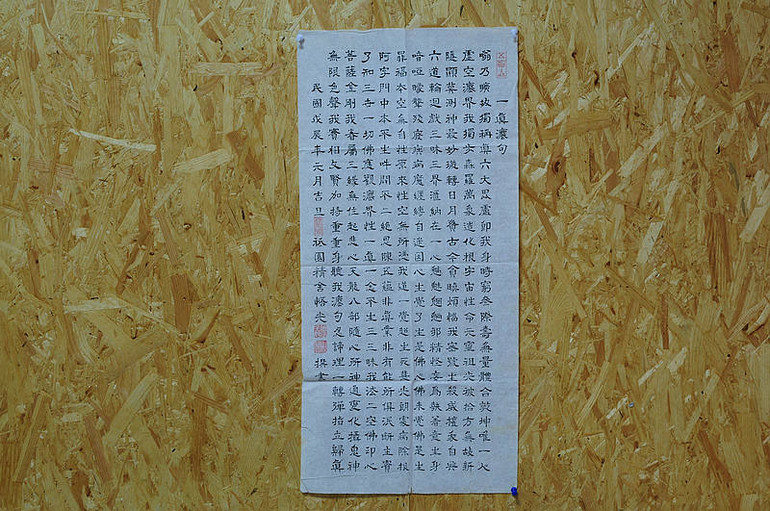 一真瀍句
嗡乃曠劫獨稱真六大毘盧即我身時窮叁際壽無量體合乾坤唯一人
虛空瀍界我獨步森羅萬象造化根宇宙性命元靈祖光被拾方無故新
隱顯莫測神最妙璇轉日月貫古今貪瞋煩惱我密號生殺威權我自興
六道輪迴戲三昧三界滙納在一心魑魅魍魎邪精怪妄為執著意生身
喑啞矇聾殘廢疾病魔纏縛自迷因心生覺了生是佛心佛未覺佛是生
罪福本空無自性原來性空無所憑我道一覺超生死慧光朗照病除根
阿字門中本不生吽開不二絕思陳五蘊非真業非有能所俱泯斷主賓
了知三世一切佛應觀瀍界性一真一念不生三三昧我法二空佛印心
菩薩金剛我眷屬三緣無住起悲心天龍八部隨心所神通變化攝鬼神
無限色聲我實相文賢加持重重身聽我瀍句認諦理一轉彈指立歸真
民國戊辰年元月吉日 祇園精舍悟光 撰書